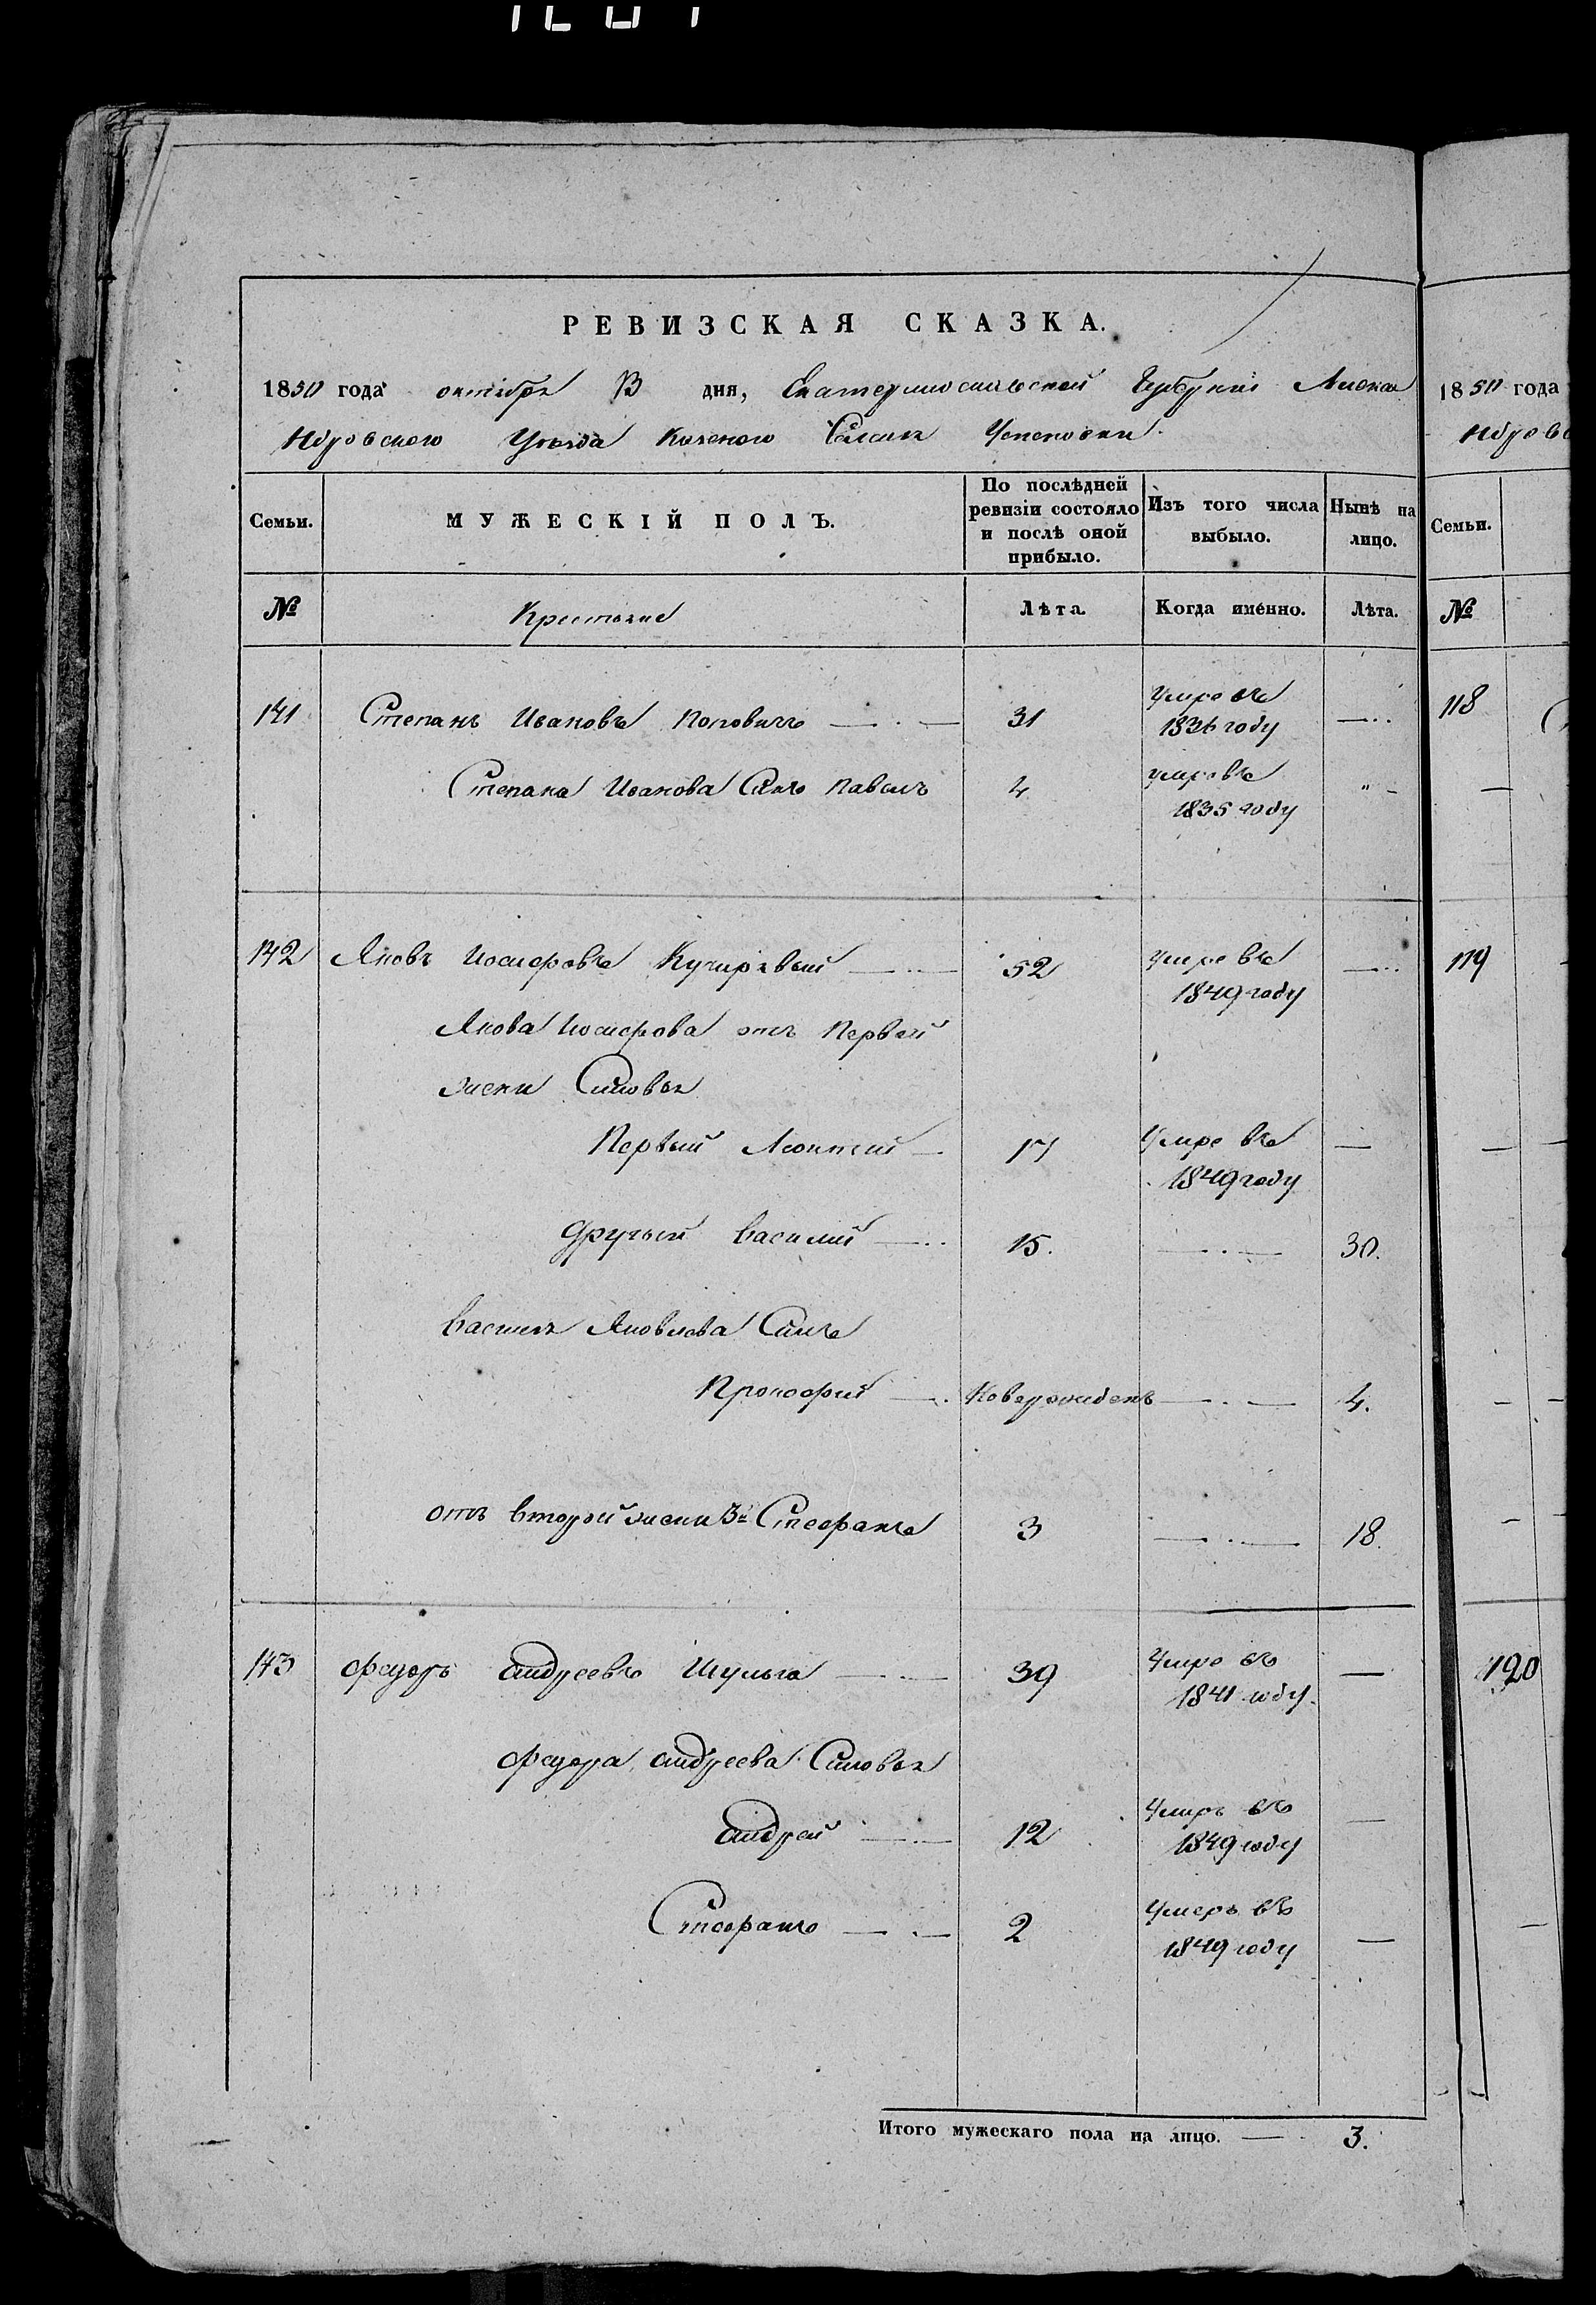 РЕВИЗСКАЯ СКАЗКА.
1850 года октября 13 дня, Екатеринославской Губерніи Алекса
ндровского Уезда Казеного Селенія Успеновки
Семьи.
МУЖЕСКІЙ ПОЛЪ.
По послѣдней ревизіи состояло и послѣ оной прибыло.
Изъ того числа выбыло.
Нынѣ на лицо.
№
Крестьяне
Лѣта.
Когда именно.
Лѣта.
141 Степанъ Ивановъ Поповичъ 31 Умре въ 1836 году
Степана Иванова Сынъ Павелъ 4 умре въ 1835 году
142 Яковъ Иосифовъ Кучирявый 52 Умре въ 1849 году
Якова Иосифова отъ Первой
жены Сыновья
Первый Леонтий 17 Умре въ 1849 году
другый Василий 15. 30.
Василя Яковлева Сынъ
Прокофий Новорожденъ 4.
отъ второй жены 3й Стефанъ 3 18.
143 Федоръ Андреевъ Шульга 39 Умре въ 1841 году.
Федора Андреева Сыновья
Андрей 12 Умеръ въ 1849 году
Стефанъ 2 Умеръ въ 1849 году
Итого мужескаго пола на лицо. 3.
1850 года
ндровс
Семьи.
№
118
119
120